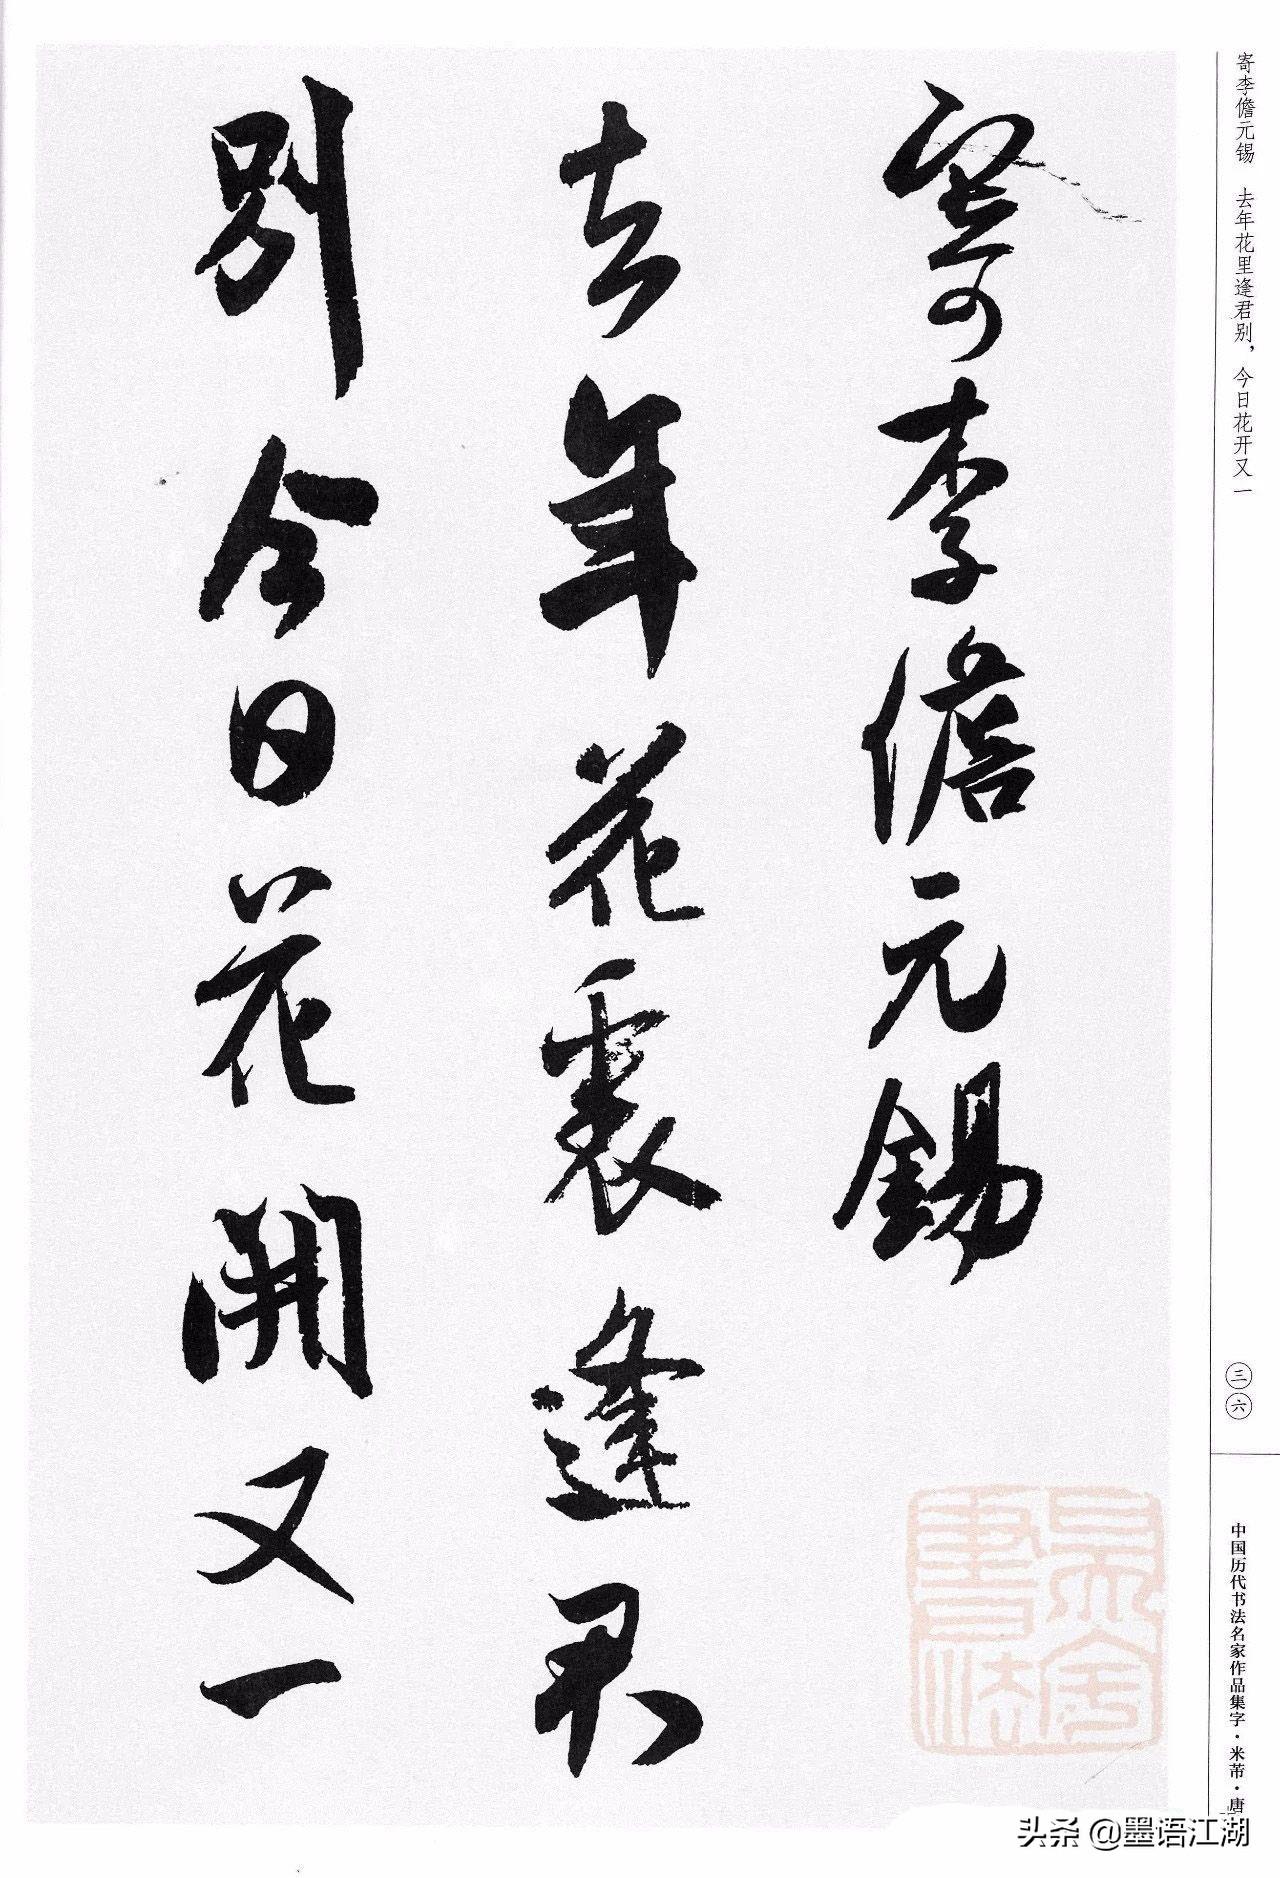 寄李儋元锡　去年花里逢君别，今日花开又一
三六
中国历代书法名家作品集字·米芾·唐
寄李儋元錫
去年花裏逢君
別今日花開又一
头条 @墨语江湖